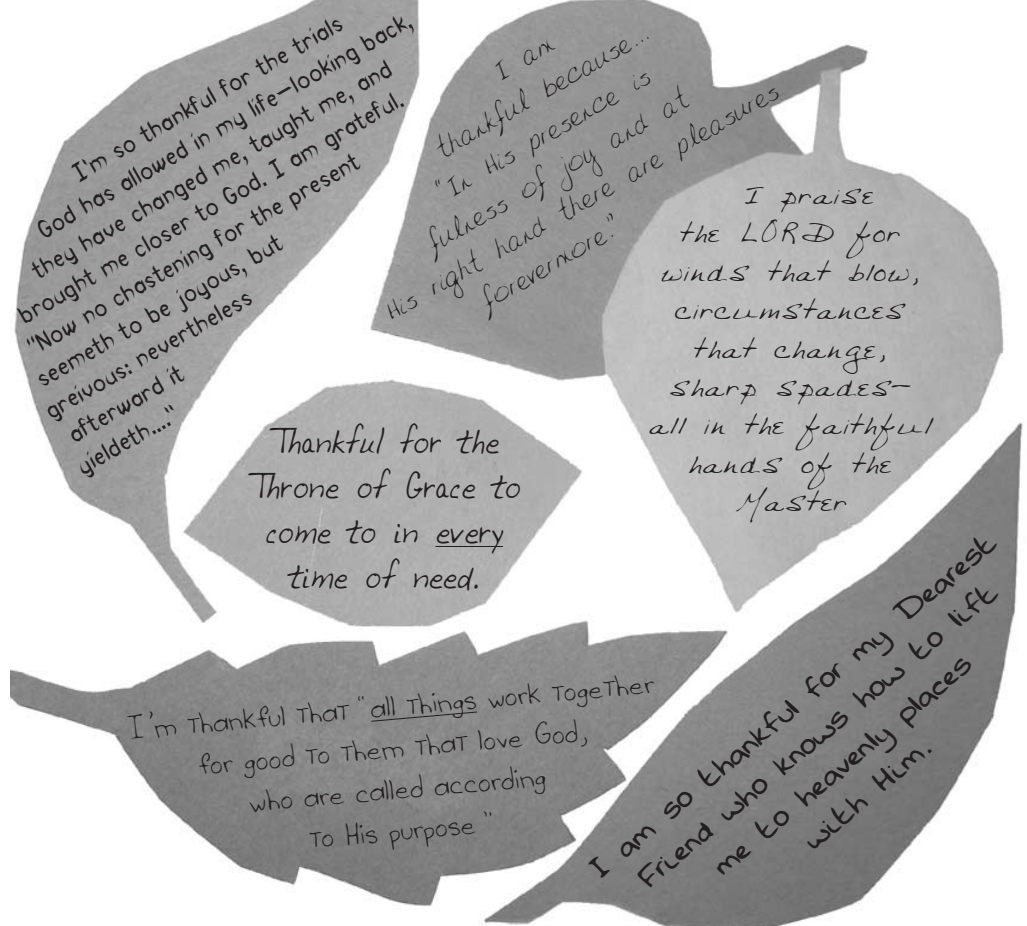 I'm so thankful for the trials
God has allowed in my life—looking back,
they have changed me, taught me, and
brought me closer to God. I am grateful.
"Now no chastening for the present
seemeth to be joyous, but
greivous: nevertheless
afterward it
yieldeth...."
I am
thankful because...
"In His presence is
fulness of joy and at
His right hand there are pleasures
forevermore."
I praise
the LORD for
winds that blow,
circumstances
that change,
sharp spades—
all in the faithful
hands of the
Master
Thankful for the
Throne of Grace to
come to in every
time of need.
I'm thankful that "all things work together
for good to them that love God,
who are called according
to His purpose"
I am so thankful for my Dearest
Friend who knows how to lift
me to heavenly places
with Him.